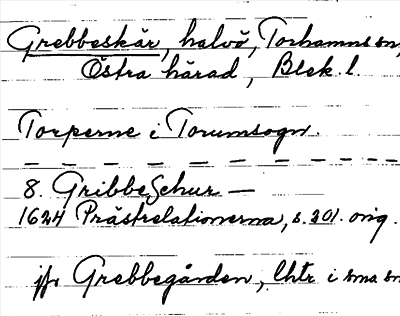 Grebbeskär, halvö, Torhamns sn,
Östra härad, Blek. l.
Torperne i Torumsogn.
— — — — — — — — — — —
8. GribbeSchur —
1624 Prästrelationerna, s. 301. orig.
jfr Grebbegården, lhtr i sma sn